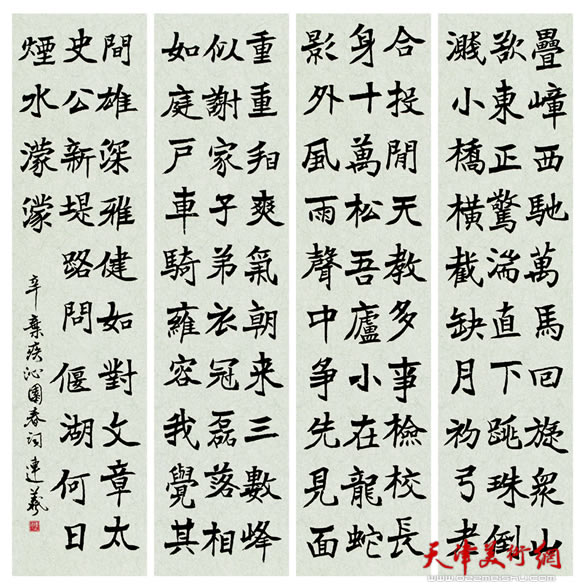 疊嶂西馳萬馬回旋衆山
欲東正驚湍直下跳珠倒
濺小橋橫截缺月初弓老
合投閒天教多事檢校長
身十萬松吾廬小在龍蛇
影外風雨聲中爭先見面
重重看爽氣朝来三數峰
似謝家子弟衣冠磊落相
如庭戶車騎雍容我覺其
間雄深雅健如對文章太
史公新堤路問偃湖何日
煙水濛濛
辛棄疾沁園春詞 連羲
天津美術網